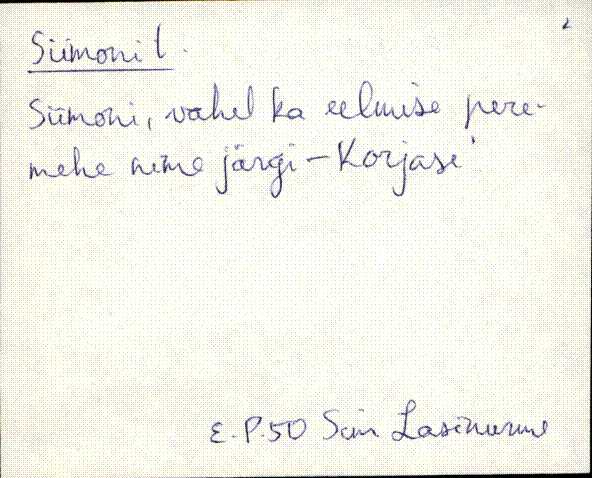 Siimoni t.
Siimoni, vahel ka eelmise pere-
mehe nime järgi – Korjase
E. P. 50 Sim Lasinurme